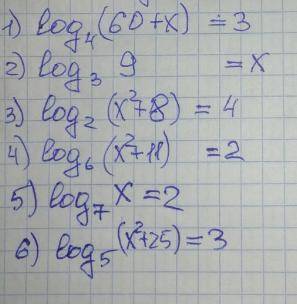 1) log₄(60+x) = 3
2) log₃ 9 = x
3) log₂(x²+8) = 4
4) log₆(x²+11) = 2
5) log₇ x = 2
6) log₅(x²+25) = 3